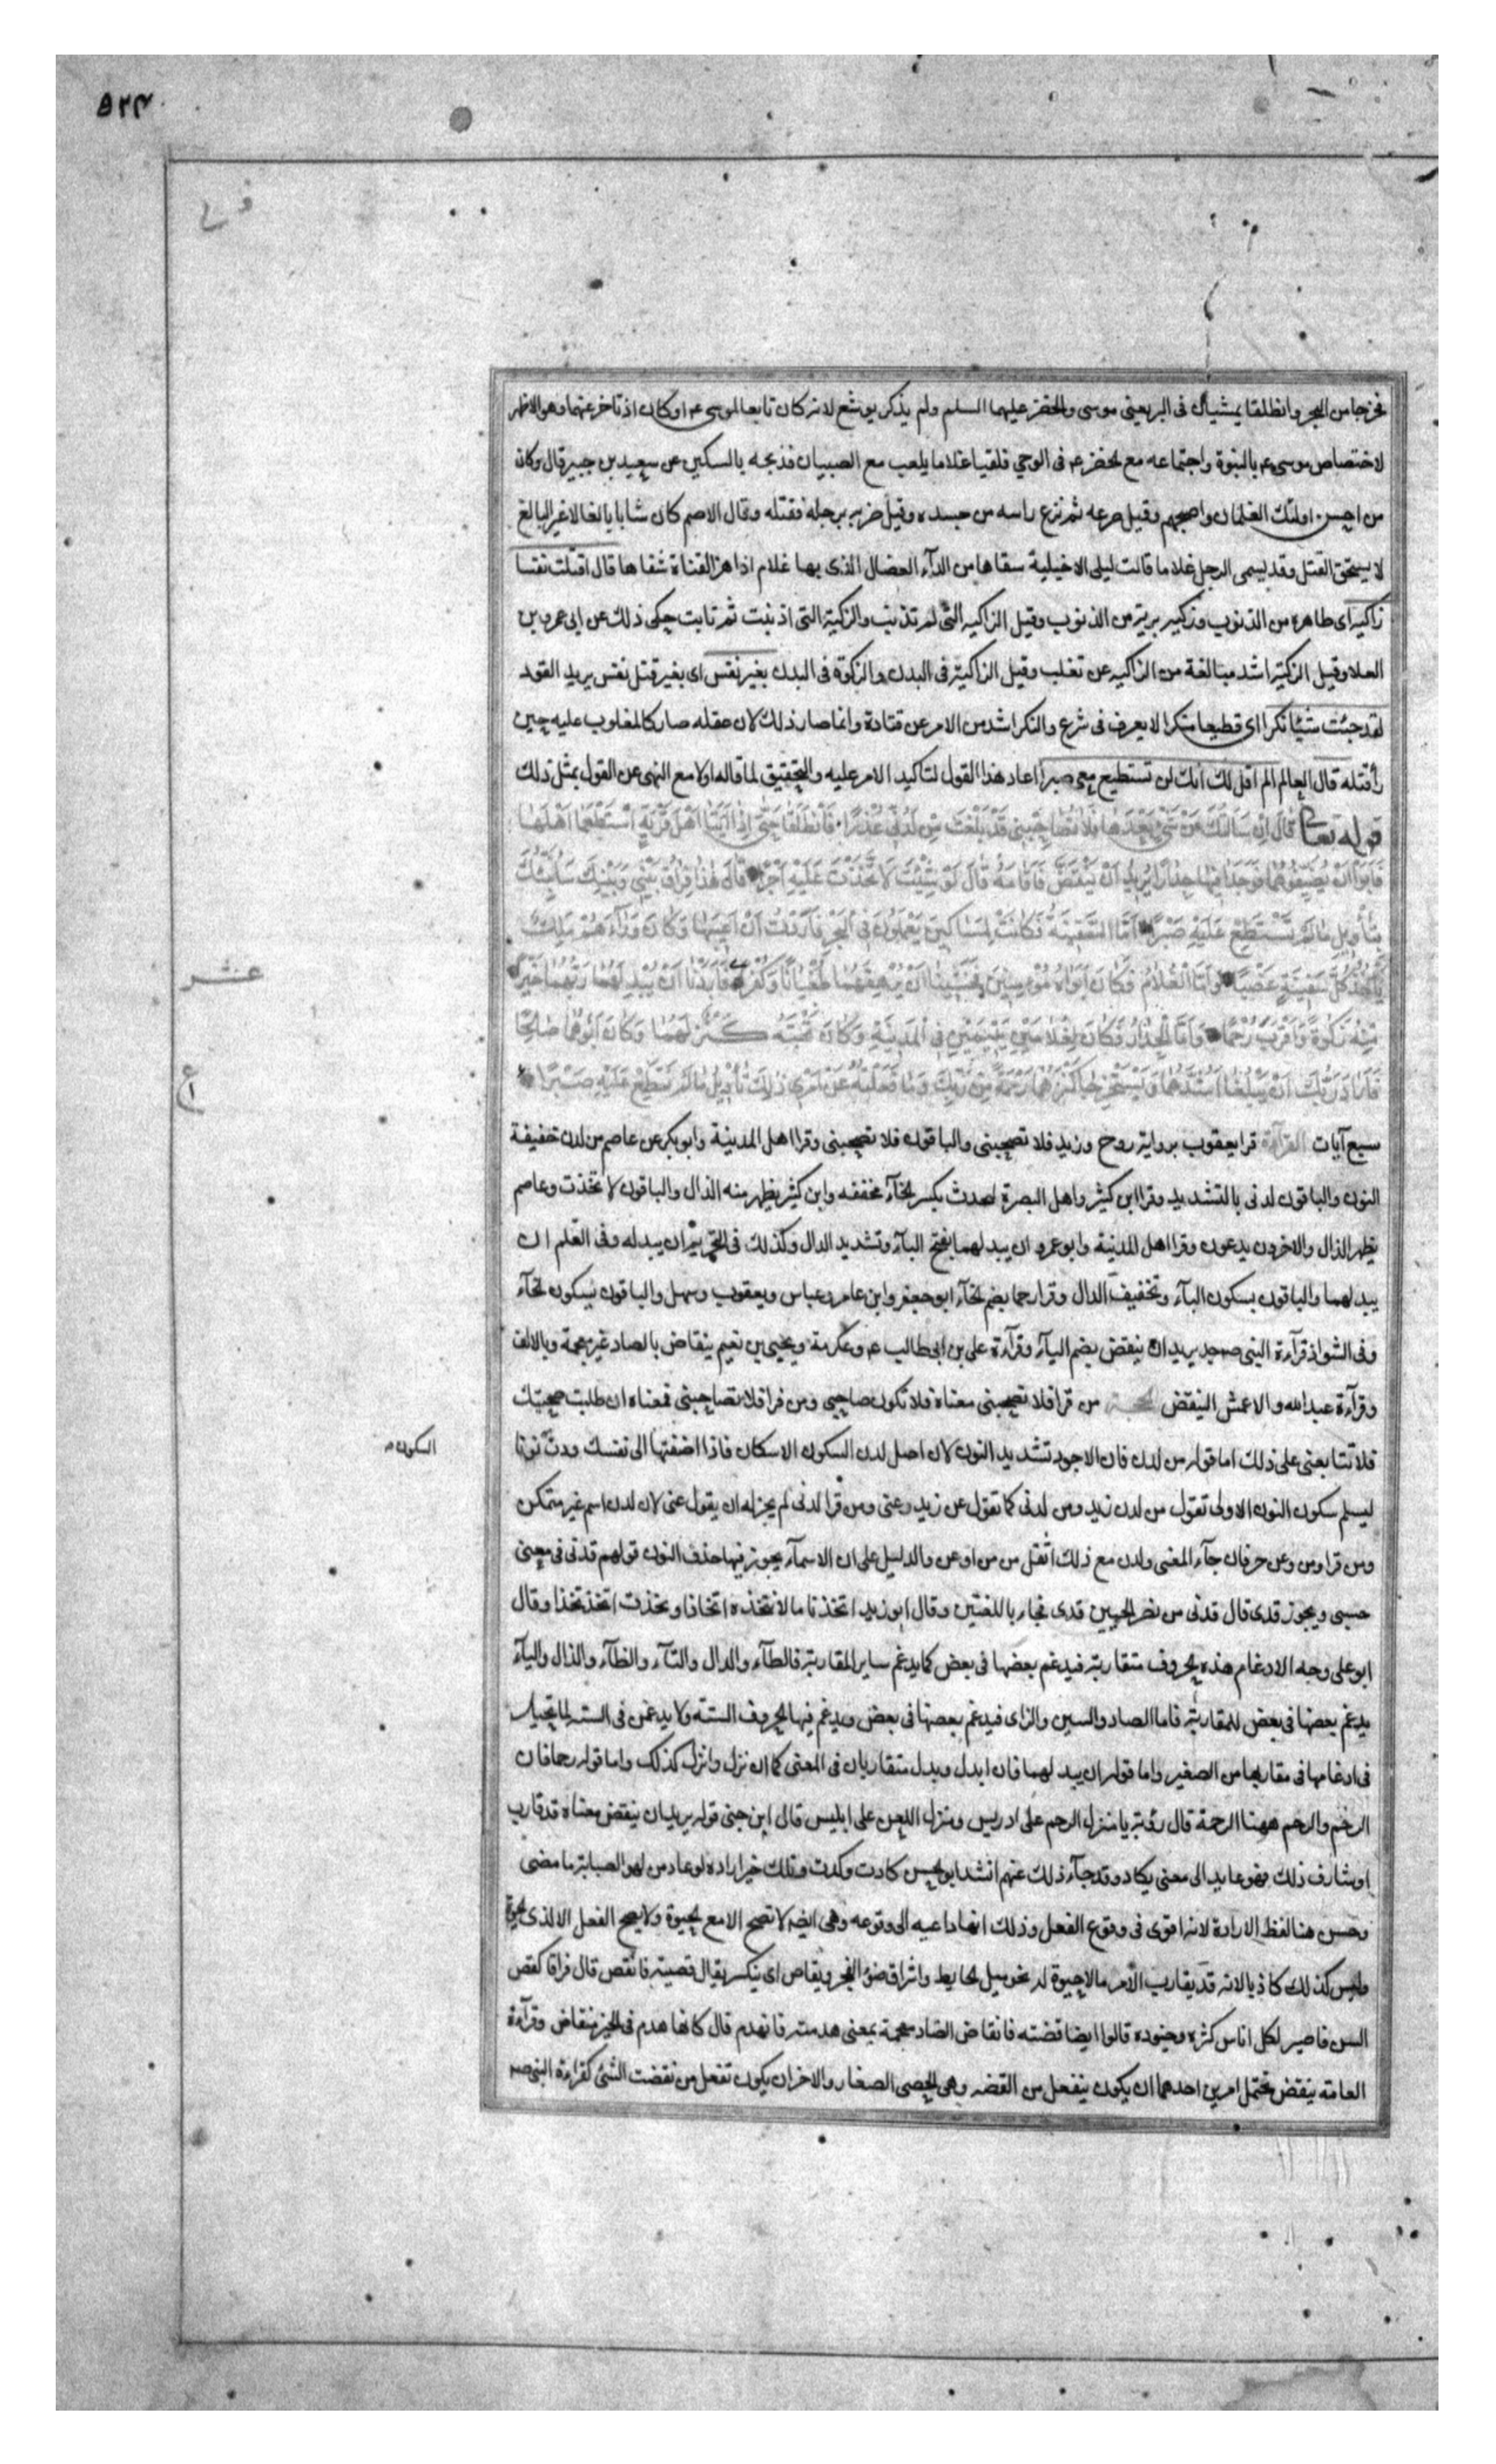 ٥٢٣
فخرجا من البحر وانطلقا يمشيان فى البر يعنى موسى والخضر عليهما السلم ولم يذكر يوشع لانه كان تابعا لموسى ع م او كان اذ تاخر عنهما وهو الاظهر
لاختصاص موسى ع م بالنبوة واجتماعه مع الخضر ع م فى الوحي فلقيا غلاما يلعب مع الصبيان فذبحه بالسكين عن سعيد بن جبير قال وكان
من احسن اولئك الغلمان واصبحهم وقيل صرعه ثم نزع راسه من جسده وقيل ضربه برجله فقتله وقال الاصم كان شابا بالغا لان غير البالغ
لا يستحق القتل وقد يسمى الرجل غلاما قالت ليلى الاخيلية سقاها من الدآء العضال الذى بها غلام اذا هز القناة شفاها قال اقتلت نفسا
زاكيه اى طاهره من الذنوب وزكيه برية من الذنوب وقيل الزاكيه التى لم تذنب والزكية التى اذنبت ثم تابت حكى ذلك عن ابى عمرو بن
العلا وقيل الزكية اشد مبالغة من الزاكيه عن ثعلب وقيل الزاكية فى البدن والزكوة فى البدن بغير نفس اى بغير قتل نفس يريد القود
لقد جئت شيئا نكرا اى قطيعا منكرا لا يعرف فى شرع والنكر اشد من الامر عن قتادة وانما صار ذلك لان عقله صار كالمغلوب عليه حين
رأ قتله قال العالم الم اقل لك انك لن تستطيع معى صبرا اعاد هذا القول لتاكيد الامر عليه والتحقيق لما قاله اولا مع النهى عن القول بمثل ذلك
قوله تعا قَالَ اِنْ سَاَلْتُكَ عَنْ شَيْءٍ بَعْدَهَا فَلَا تُصَاحِبْنِي قَدْ بَلَغْتَ مِنْ لَدُنِّي عُذْرًا فَانْطَلَقَا حَتّى اِذَا اَتَيَا اَهْلَ قَرْيَةٍ اسْتَطْعَمَا اَهْلَهَا
فَاَبَوْا اَنْ يُضَيِّفُوهُمَا فَوَجَدَا فِيهَا جِدَارًا يُرِيدُ اَنْ يَنْقَضَّ فَاَقَامَهُ قَالَ لَوْ شِئْتَ لَاتَّخَذْتَ عَلَيْهِ اَجْرًا قَالَ هٰذَا فِرَاقُ بَيْنِي وَبَيْنِكَ سَاُنَبِّئُكَ
بِتَأْوِيلِ مَا لَمْ تَسْتَطِعْ عَلَيْهِ صَبْرًا اَمَّا السَّفِينَةُ فَكَانَتْ لِمَسَاكِينَ يَعْمَلُونَ فِى الْبَحْرِ فَاَرَدْتُ اَنْ اَعِيبَهَا وَكَانَ وَرَآءَهُمْ مَلِكٌ
يَأْخُذُ كُلَّ سَفِينَةٍ غَصْبًا وَاَمَّا الْغُلَامُ فَكَانَ اَبَوَاهُ مُؤْمِنَيْنِ فَخَشِينَا اَنْ يُرْهِقَهُمَا طُغْيَانًا وَكُفْرًا فَاَرَدْنَا اَنْ يُبْدِلَهُمَا رَبُّهُمَا خَيْرًا
مِنْهُ زَكٰوةً وَاَقْرَبَ رُحْمًا وَاَمَّا الْجِدَارُ فَكَانَ لِغُلَامَيْنِ يَتِيمَيْنِ فِى الْمَدِينَةِ وَكَانَ تَحْتَهُ كَنْزٌ لَهُمَا وَكَانَ اَبُوهُمَا صَالِحًا
فَاَرَادَ رَبُّكَ اَنْ يَبْلُغَا اَشُدَّهُمَا وَيَسْتَخْرِجَا كَنْزَهُمَا رَحْمَةً مِنْ رَبِّكَ وَمَا فَعَلْتُهُ عَنْ اَمْرِى ذٰلِكَ تَأْوِيلُ مَا لَمْ تَسْطِعْ عَلَيْهِ صَبْرًا
سبع آيات القرآءة قرا يعقوب برواية روح وزيد فلا تصحبنى والباقون فلا تصاحبنى وقرا اهل المدينة وابو بكر عن عاصم من لدن خفيفة
النون والباقون لدنى بالتشديد وقرا ابن كثير واهل البصرة لتخذت بكسر الخآء مخففه وابن كثير يظهر منه الذال والباقون لاتخذت وعاصم
يظهر الذال والاخرون يدغمون وقرا اهل المدينة وابو عمرو ان يبدلهما بفتح البآء وتشديد الدال وكذلك فى التحريم ان يبدله وفى القلم ان
يبدلهما والباقون بسكون البآء وتخفيف الدال وقرا رحما بضم الخآء ابو جعفر وابن عامر وعباس ويعقوب وسهل والباقون بسكون الحآء
وفى الشواذ قرآءة النبى ص جد يريد ان ينقض بضم اليآء وقرآءة على بن ابى طالب ع م وعكرمة ويحيى بن نعيم ينقاص بالصاد غير معجمة وبالالف
وقرآءة عبد الله والاعمش لينقض الحجة من قرا فلا تصحبنى معناه فلا تكون صاحبى ومن قرا فلا تصاحبنى فمعناه ان طلبت صحبتك
فلا تتابعنى على ذلك اما قوله من لدن فان الاجود تشديد النون لان اصل لدن السكون الاسكان فاذا اضفتها الى نفسك زدت نونا
ليسلم سكون النون الاولى تقول من لدن زيد ومن لدنى كما تقول عن زيد وعنى ومن قرا لدنى لم يجز له ان يقول عنى لان لدن اسم غير متمكن
ومن قرا ومن وعن حرفان جآء المعنى ولدن مع ذلك اثقل من من او عن والدليل على ان الاسمآء يجوز فيها حذف النون قولهم قدنى فى معنى
حسبى ويجوز قدى قال قدنى من نصر الخبيبين قدى فجاء باللغتين وقال ابو زيد اتخذنا مالا نتخذه اتخاذا وتخذت اتخذ تخذا وقال
ابو على وجه الادغام هذه الحروف متقاربة فيدغم بعضها فى بعض كما يدغم ساير المقاربة فالطآء والدال والتآء والظآء والذال واليآء
يدغم بعضها فى بعض للمقاربة فاما الصاد والسين والزاى فيدغم بعضها فى بعض ويدغم فيها الحروف الستة ولا يدغمن فى الستة لما يختل
فى ادغامها فى مقاربها من الصفير واما قوله ان يبدلهما فان ابدل وبدل متقاربان فى المعنى كما ان نزل وانزل كذلك واما قوله رحما فان
الرخم والرحم ههنا الرحمة قال رؤبة يا منزل الرحم على ادريس ومنزل اللعن على ابليس قال ابن جنى قوله يريد ان ينقض معناه قد قارب
او شارف ذلك فهو عايد الى معنى يكاد وقد جآء ذلك عنهم انشد ابو الحسن كادت وكدت وتلك خير اراده لو عاد من لهو الصبابة ما مضى
وحسن هنا لفظ الارادة لانه اقوى فى وقوع الفعل وذلك انها داعيه الى وقوعه وهى ايضا لا تصح الا مع الحيوة ولا يصح الفعل الا لذى الحيوة
وليس كذلك كاد لانه قد يقارب الامر ما لا حيوة له نحو ميل الحايط واشراق ضوء الفجر ويقاص اى ينكسر يقال قصيته فانقص قال فراقا كقص
السن فاصبر لكل اناس كثره وجنوده قالوا ايضا قضته فانقاض الضاد معجمة بمعنى هدمته فانهدم قال كانها هدم فى الجفر منقاض وقرآءة
العامة ينقض يحتمل امرين احدهما ان يكون ينفعل من القضه وهى الحصى الصغار والاخر ان يكون تفعل من نقضت الشئ كقراءة النبى ص
عشر
ع
السكون